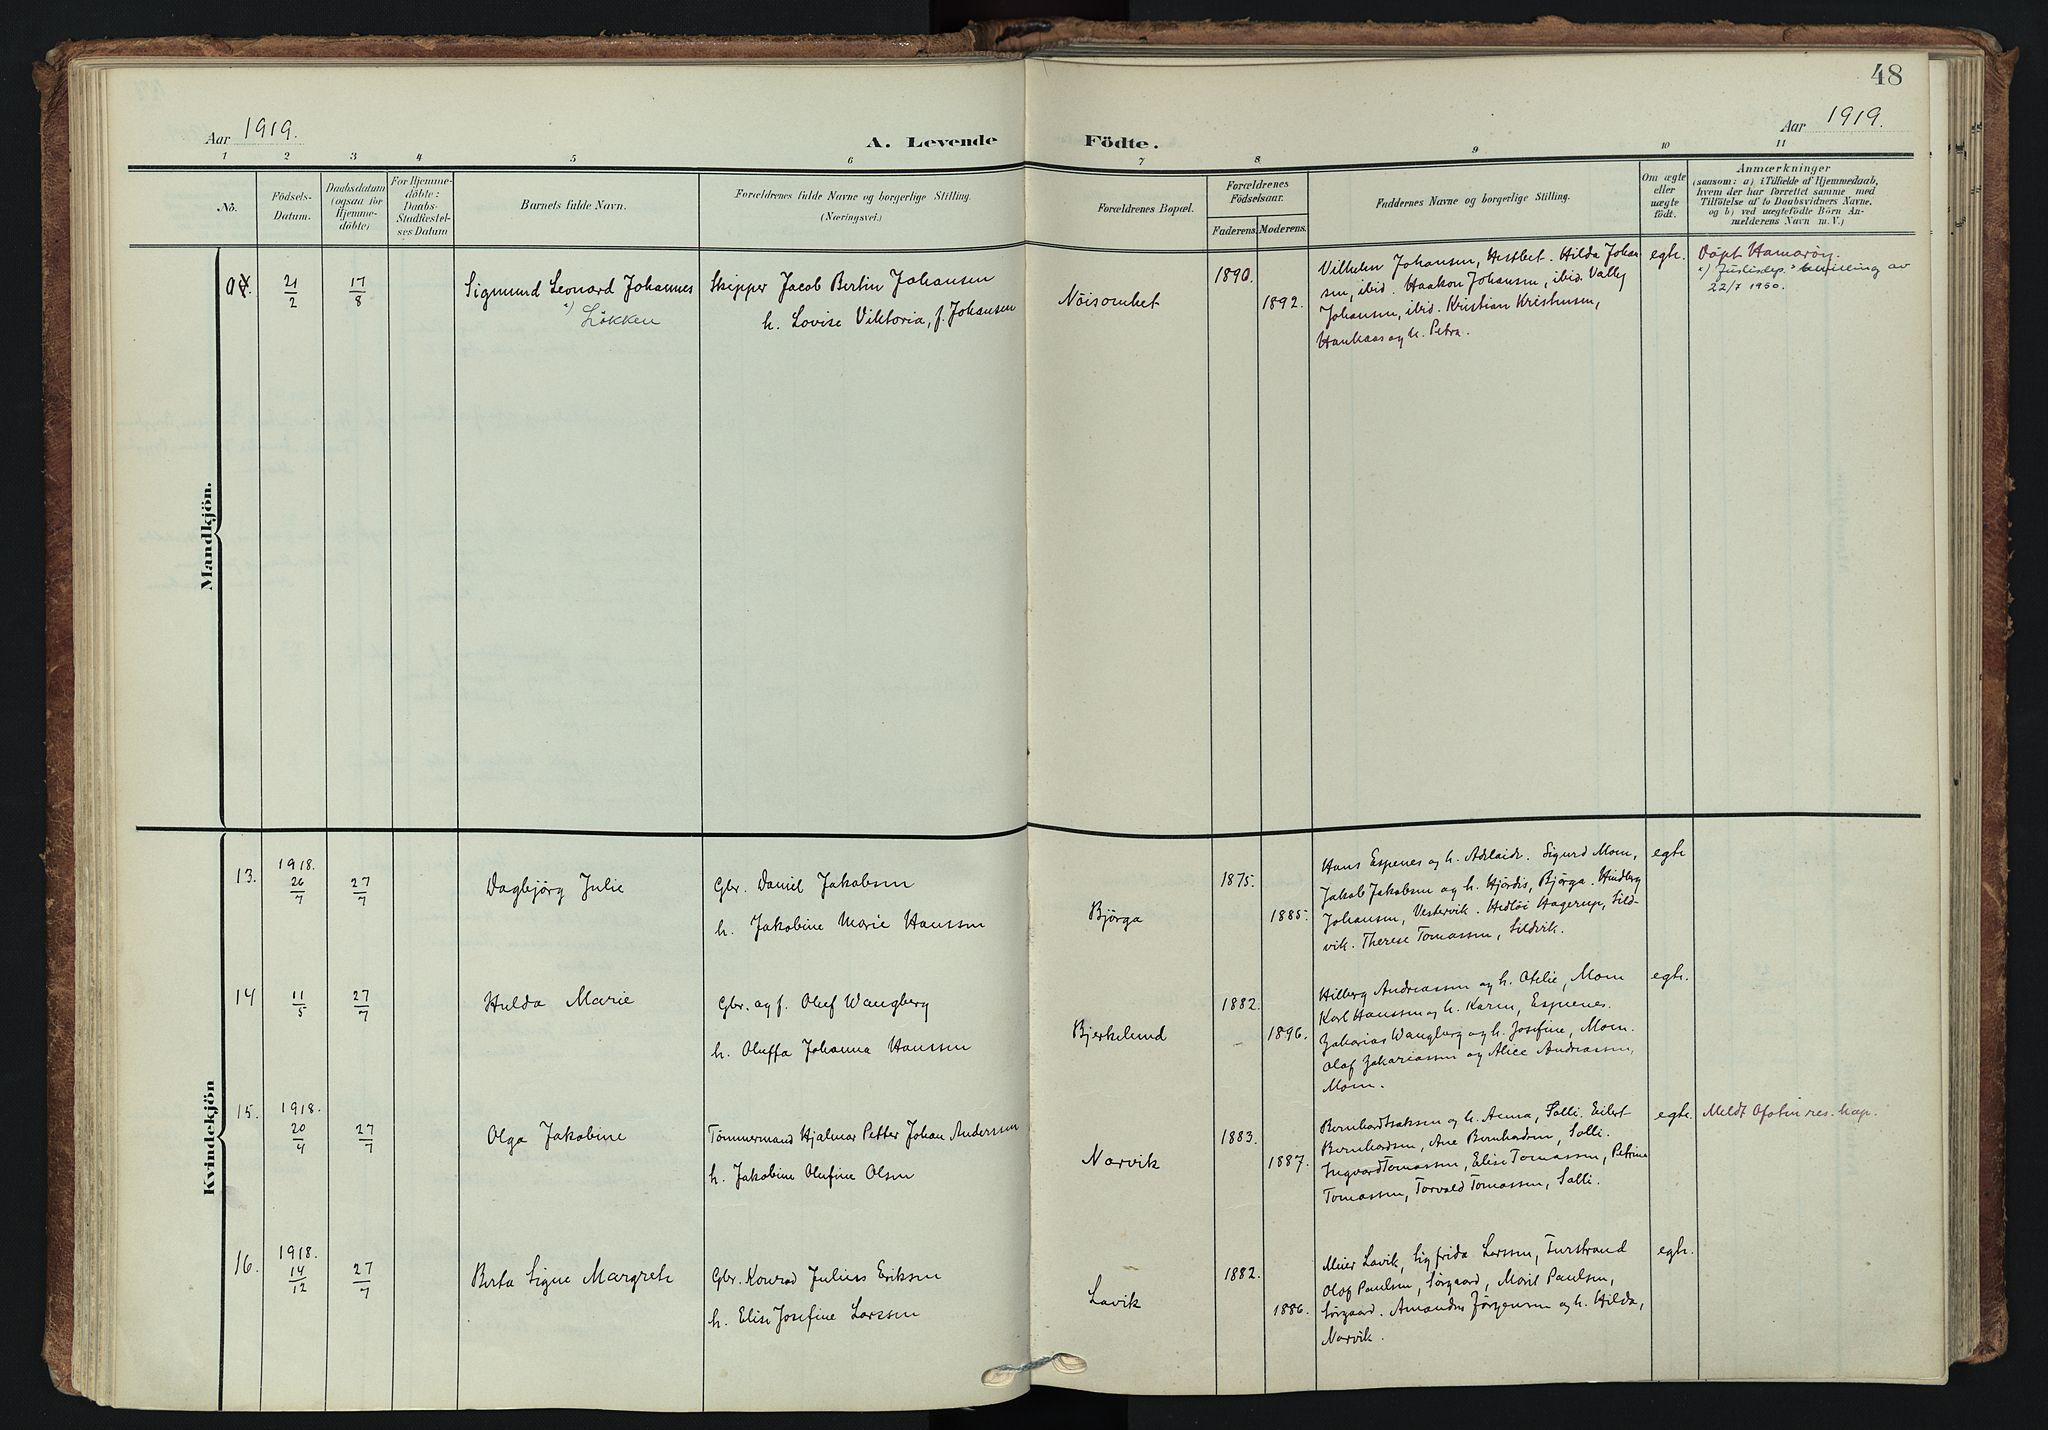 48
Aar 1919.
A. Levende Födte.
Aar 1919.
1 2 3 4 5 6 7 8 9 10 11
Nö.
Födsels-
Datum.
Daabsdatum
(ogsaa for
Hjemme-
döbte)
For Hjemme-
döbte:
Daabs-
Stadfæstel-
ses Datum
Barnets fulde Navn.
Forældrenes fulde Navne og borgerlige Stilling.
(Næringsvei.)
Forældrenes Bopæl.
Forældrenes
Födselsaar.
Faderens. Moderens.
Faddernes Navne og borgerlige Stilling.
Om ægte
eller
uægte
födt.
Anmærkninger
(saasom: a) i Tilfælde af Hjemmedaab,
hvem der har forrettet samme med
Tilföielse af to Daabsvidners Navne.
og b) ved uægtefödte Börn An-
melderens Navn m. V.)
Mandkjön.
21/2 17/8 Sigmund Leonard Johannes
x) Løkken
Skipper Jacob Bertin Johansen
h. Lovise Viktoria, f. Johansen
Nöisomhet
1890.
1892.
Vilhelm Johansen, Hestbet. Hilda Johan
sen, ibid. Haakon Johansen, ibid. Vally
Johansen, ibid. Kristian Kristensen,
og h. Petra.
egte.
Døpt Hamarøy.
x) Justisdep. bevilling av
22/7 1950.
Kvindekjön
13. 1918. 26/7 27/7 Dagbjörg Julie
Gbr. Daniel Jakobsen
h. Jakobine Marie Hanssen
Bjørga
1875.
1885.
Hans Espenes og h. Adelaide. Sigurd Mom,
Jakob Jakobsen og h. Hjördis, Bjørga. Hindberg
Johansen, Vestervik. Hedløi Hagerup, Sild-
vik. Therese Tomassen, Sildvik.
egte
14 11/5 27/7 Hulda Marie
Gbr. og f. Oluf Wangberg
h. Oluffa Johanna Hanssen
Bjerkelund
1882.
1896.
Hilberg Andreassen og h. Otelie, Mom
Karl Hanssen og h. Karen, Espenes.
Zakarias Wangberg og h. Josefine, Mom.
Olaf Zakariassen og Alice Andreassen,
Mom.
egte.
15. 1918. 20/4 27/7 Olga Jakobine
Tømmermand Hjalmar Petter Johan Andersen
h. Jakobine Olufine Olsen
Narvik
1883.
1887.
Bernhard Isaksen og h. Anna, Salli. Eilert
Bernhardsen, Ane Bernhardsen, Salli.
Ingvard Tomassen, Elise Tomassen, Petrine
Tomassen, Torvald Tomassen, Salli.
egte. Meldt Ofoten res. kap.
16. 1918. 14/12 27/7 Berta Signe Margrete
Gbr. Konrad Julius Eriksen
h. Elise Josefine Larssen
Lavik
1882.
1886.
Meier Lavik, Sigfrida Larssen, Furstrand
Olaf Paulsen, Sørgaard, Marit Paulsen,
Sørgaard. Amandus Jørgensen og h. Hilda,
Narvik.
egte.